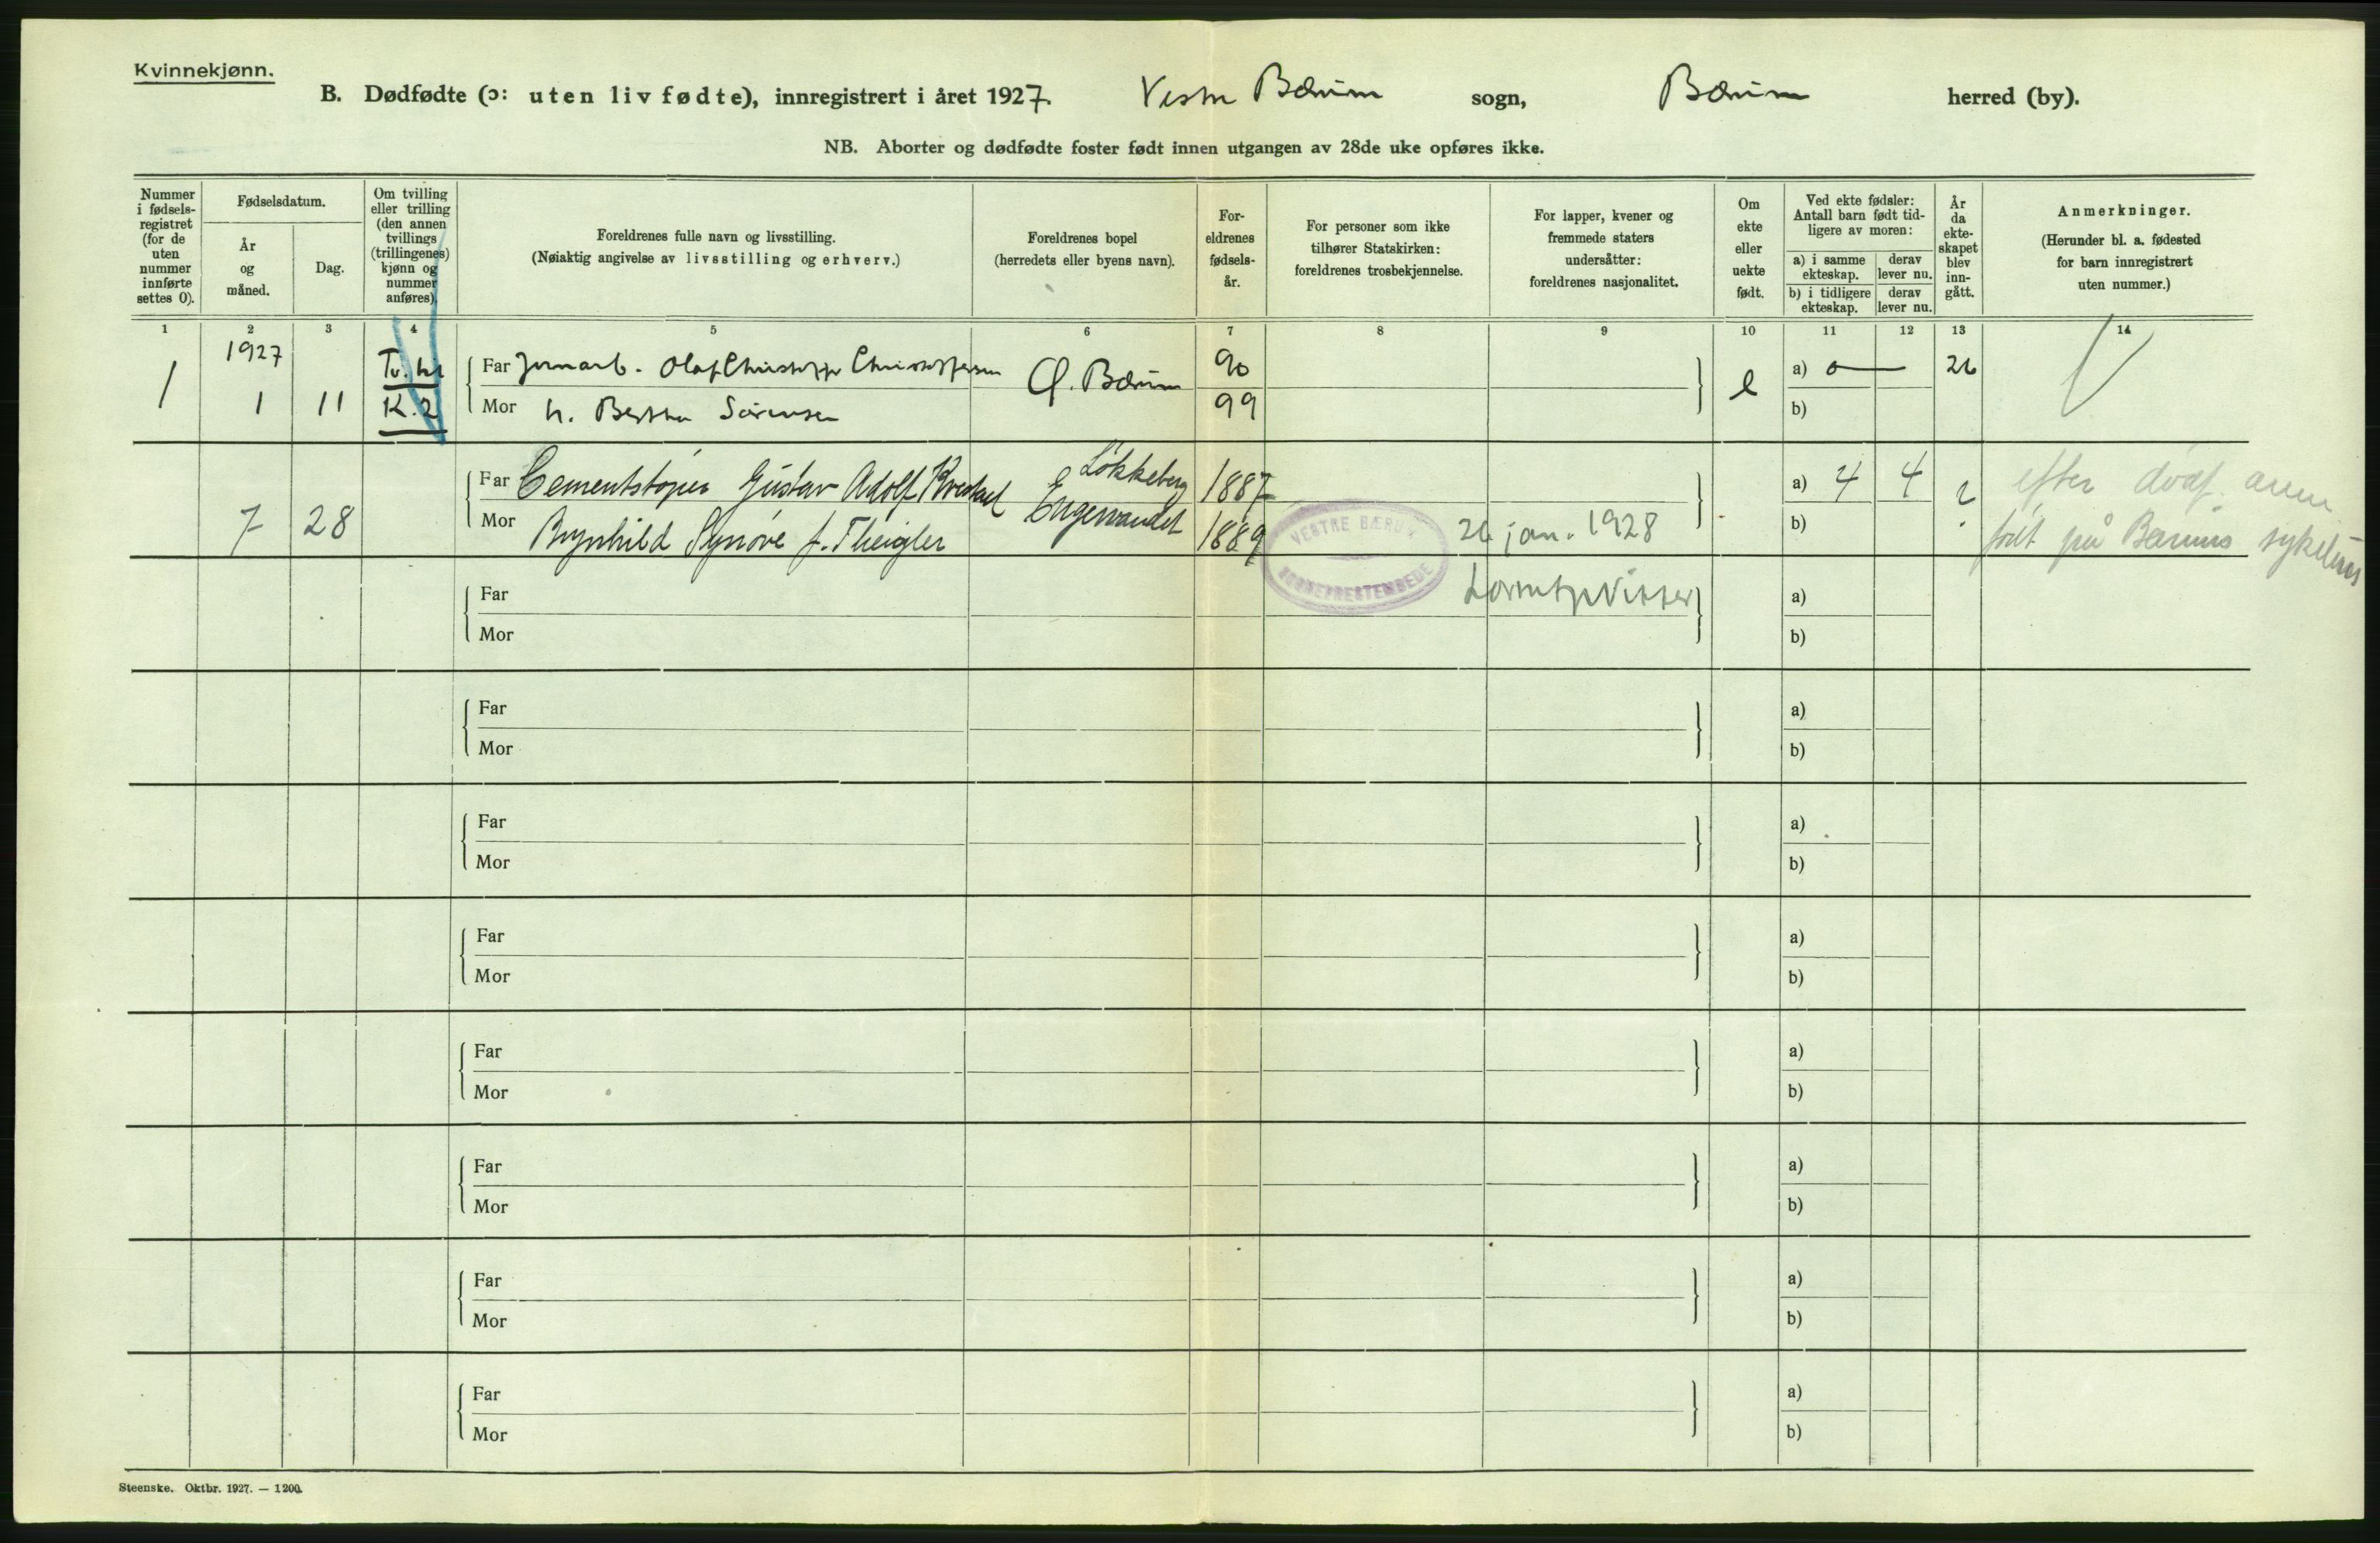 Kvinnekjønn.
B. Dødfødte (ɔ: uten liv fødte), innregistrert i året 1927. Vestre Bærum sogn, Bærum herred (by).
NB. Aborter og dødfødte foster født innen utgangen av 28de uke opføres ikke.
Nummer i fødsels-registret (for de uten nummer innførte settes 0).
Fødselsdatum.
År og måned.
Dag.
Om tvilling eller trilling (den annen tvillings (trillingenes) kjønn og nummer anføres).
Foreldrenes fulle navn og livsstilling.
(Nøiaktig angivelse av livsstilling og erhverv.)
Foreldrenes bopel
(herredets eller byens navn).
For-eldrenes fødsels-år.
For personer som ikke tilhører Statskirken: foreldrenes trosbekjennelse.
For lapper, kvener og fremmede staters undersåtter: foreldrenes nasjonalitet.
Om ekte eller uekte født.
Ved ekte fødsler: Antall barn født tid-ligere av moren:
a) i samme ekteskap. derav lever nu.
b) i tidligere ekteskap. derav lever nu.
År da ekte-skapet blev inn-gått.
Anmerkninger.
(Herunder bl. a. fødested for barn innregistrert uten nummer.)
1 2 3 4 5 6 7 8 9 10 11 12 13 14
1927
1 1 11 Tv. til K. 2
Far Jernarb. Olaf Christoffer Christoffersen Bærum 90 e a) 0 26
Mor h. Bertha Sørensen 99 b)
7 28
Far Cementstøper Gustav Adolf Løkkeberg 1887 a) 4 4 ?
Mor Brynhild Synøve f. Theigler 1889 b)
efter dødf. anm
født på Bærums sykehus
VESTRE BÆRUM
SOGNEPRESTEMBEDE
26 jan. 1928
Far a)
Mor b)
Far a)
Mor b)
Far a)
Mor b)
Far a)
Mor b)
Far a)
Mor b)
Far a)
Mor b)
Far a)
Mor b)
Far a)
Mor b)
Steenske. Oktbr. 1927. — 1200.